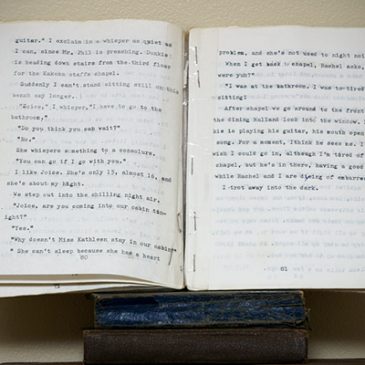 guitar." I exclaim in a whisper as quiet as
I can, since Mr. Phil is preaching. Dunkie
is heading down stairs from the third floor
for the Kakeka staffs chapel.
Suddenly I can't stand sitting still on this
bench any longer.
"Joice, I whisper, "I have to go to the
bathroom,"
"Do you think you can wait?"
"No."
She whispers something to a counsolurs.
"You can go if I go with you."
I like Joice. She's only 15, almost 16, and
she's about my hight.
We step out into the chilling night air.
"Joice, are you coming into our cabin ton-
ight?"
"Yes."
"Why doesn't Miss Kathleen stay in our cabin"
" She can't sleep because she has a heart
80
problem, and she's not used to night
When I get back to chapel, Rachel asks,
were yuh?"
"I was at the bathroom. I was to tired
sitting!
After chapel we go around to the front
the dining Hall and look into the window.
kie is playing his guitar, his mouth open
song. For a moment, I think he sees me. I
wish I could go in, although I'm tired of
chapel, but he's in there, having a good
while Rachel and I are dieing of embarre
I trot away into the dark.